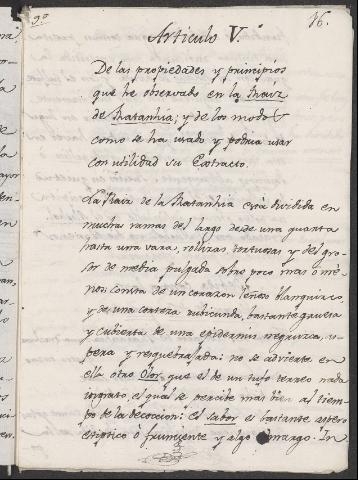 2º
16.
Articulo V.º
De las propiedades y principios
que he observado en la Raiz
de Ratanhia; y de los modos
como se ha usado y podria usar
con utilidad su Extracto.
La Raiz de la Ratanhia está dividida en
muchas ramas del largo desde una quarta
hasta una vara, rollizas tortuosas y del gro-
sor de media pulgada sobre poco mas ó me-
nos: consta de un corazon leñoso blanquizco,
y de una corteza rubicunda, bastante gruesa
y cubierta de una epidermis negruzca, as-
pera y resquebrajada: no se advierte en
ella otro Olor que el de un tufo terreo nada
ingrato, el qual se percibe mas bien al tiem-
po de la decoccion: el sabor es bastante aspero
estiptico ó frumcente y algo amargo. In